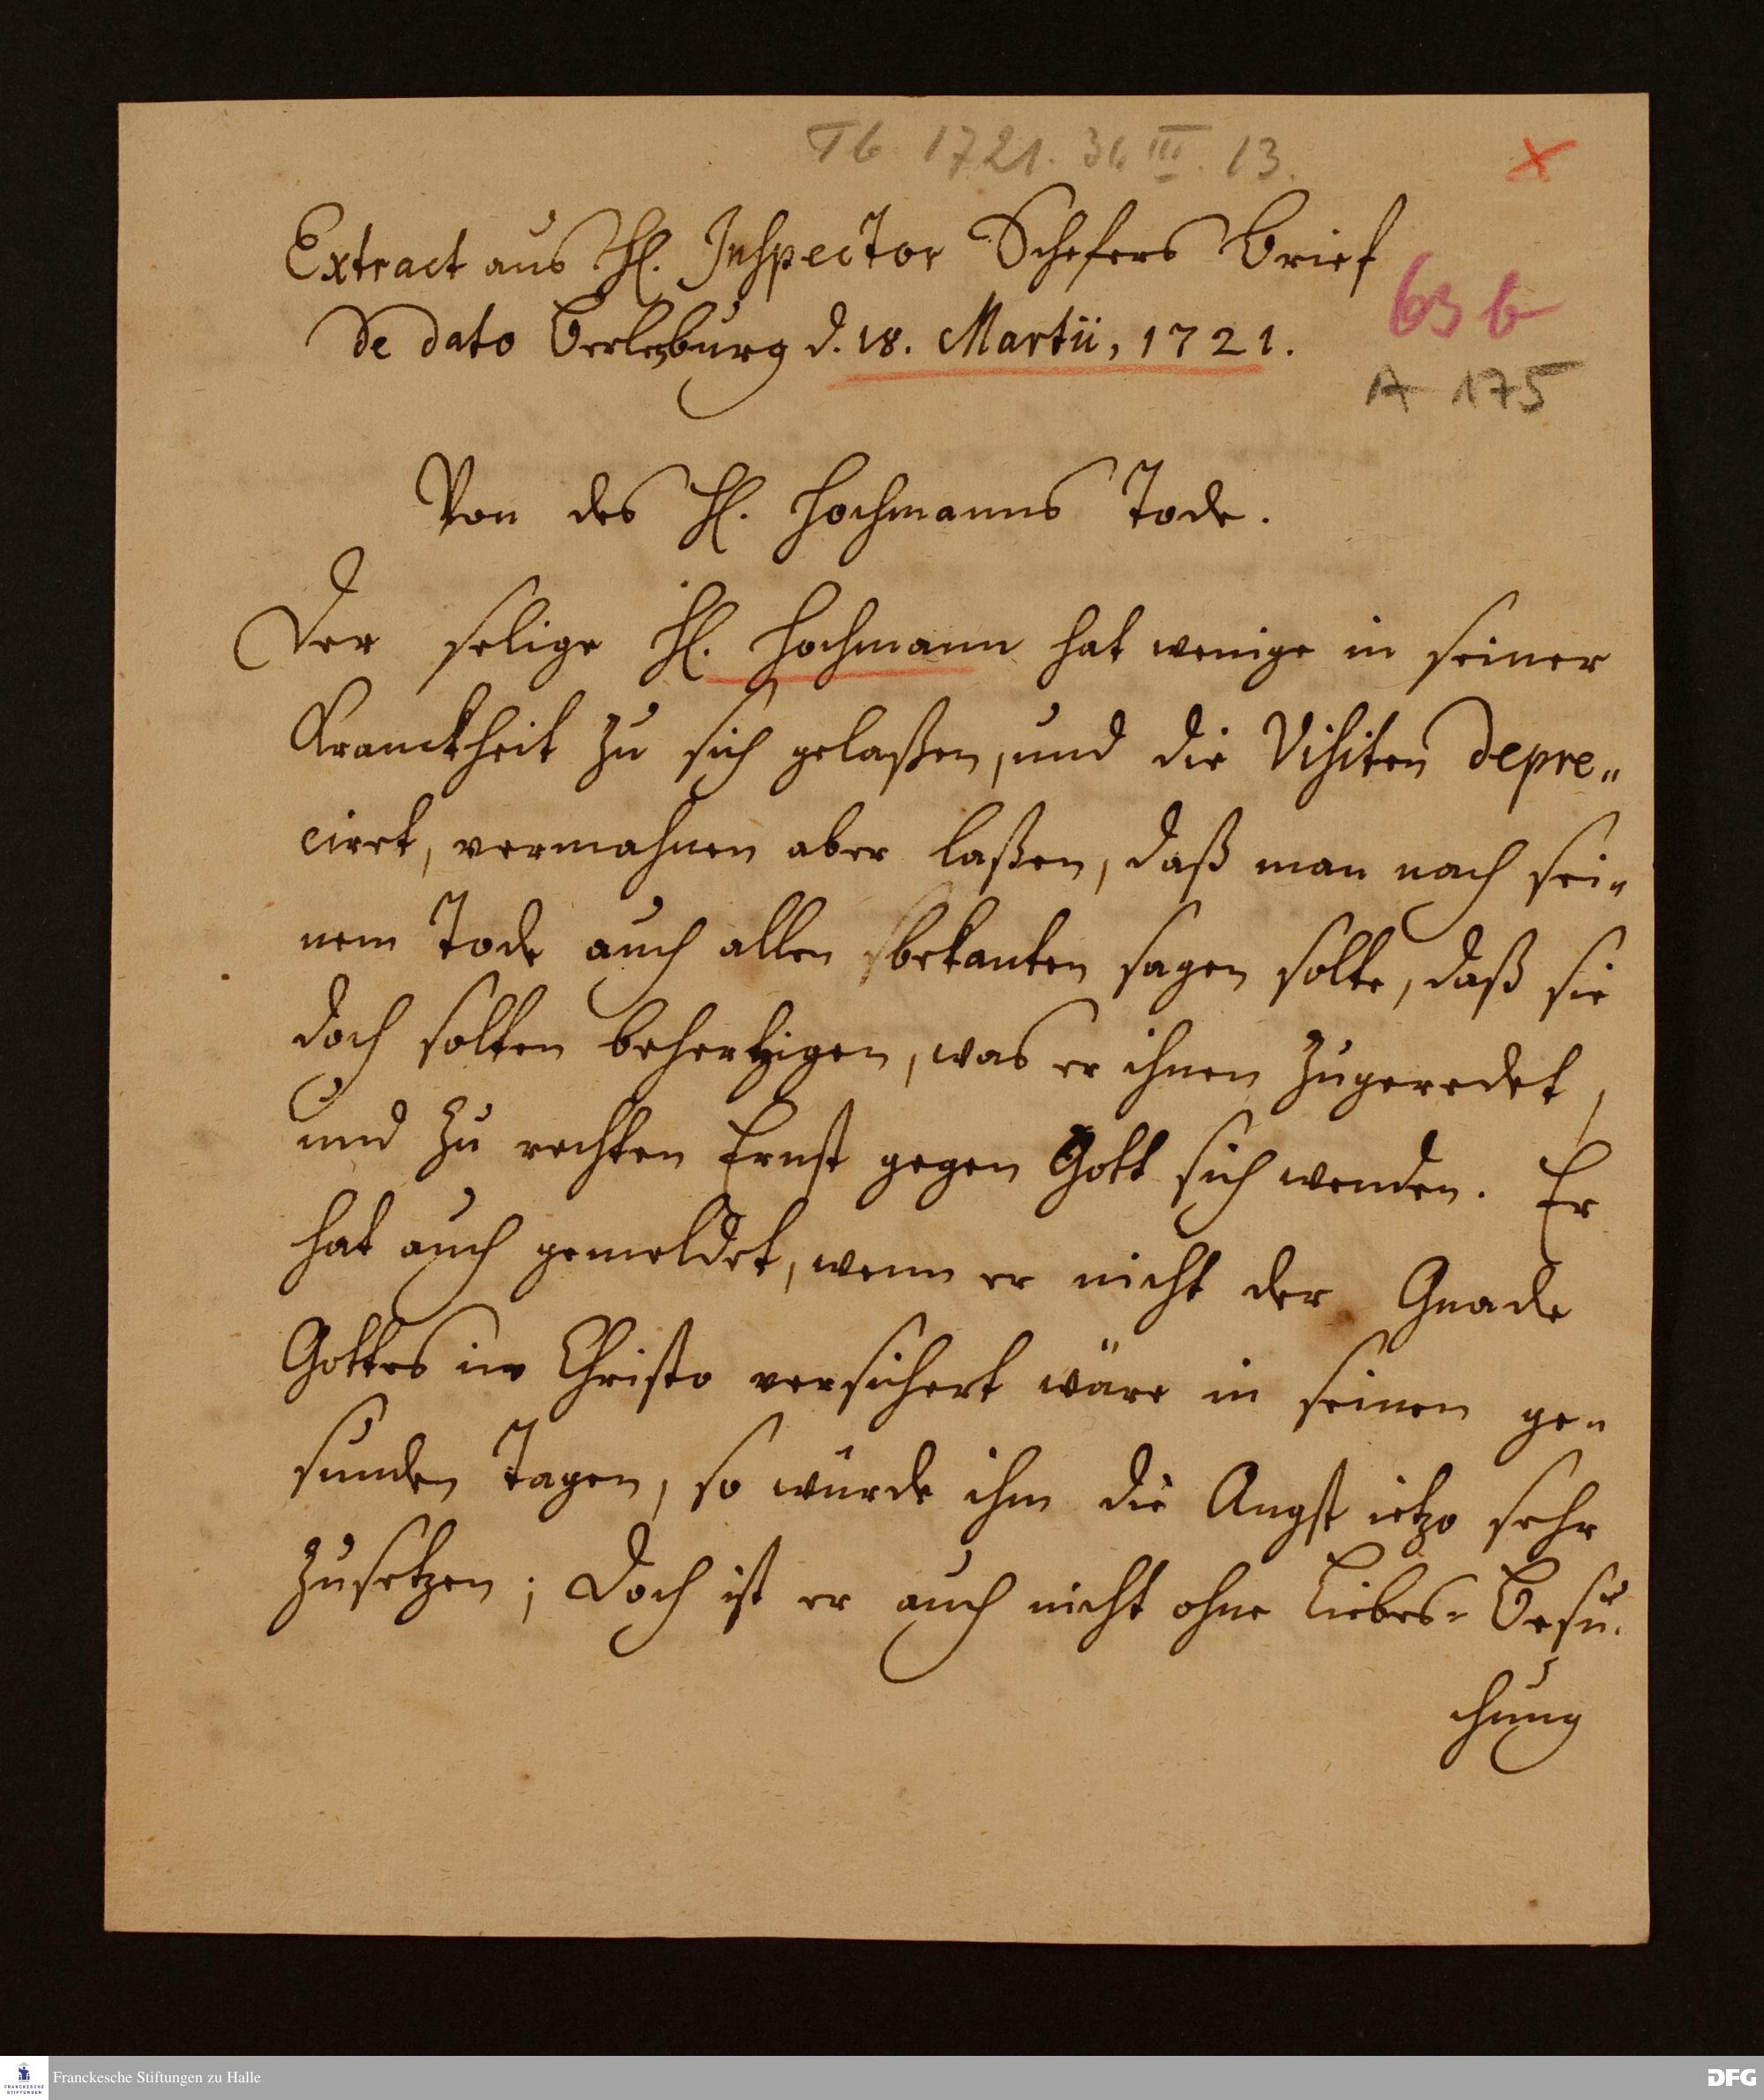 Tb 1721. 31. III. 13.
x
Extract aus H. Inspector Schefers Brief
de dato Berleburg d. 18. Martii, 1721.
63 b
A 175
Von des H. Hochmanns Tode.
Der selige H. Hochmann hat wenige in seiner
Kranckheit zu sich gelaßen, und die Visiten depre„
cirt, vermahnen aber laßen, daß man nach sei„
nem Tode auch allen bekanten sagen solte, daß sie
doch solten behertzigen, was er ihnen zugeredet,
und zu rechten Ernst gegen Gott sich wenden. Er
hat auch gemeldet, wenn er nicht der Gnade
Gottes in Christo versichert wäre in seinen ge„
sunden Tagen, so würde ihm die Angst ietzo sehr
zusetzen; Doch ist er auch nicht ohne Liebes-Besu-
chung
Franckesche Stiftungen zu Halle
FRANCKESCHE STIFTUNGEN
DFG